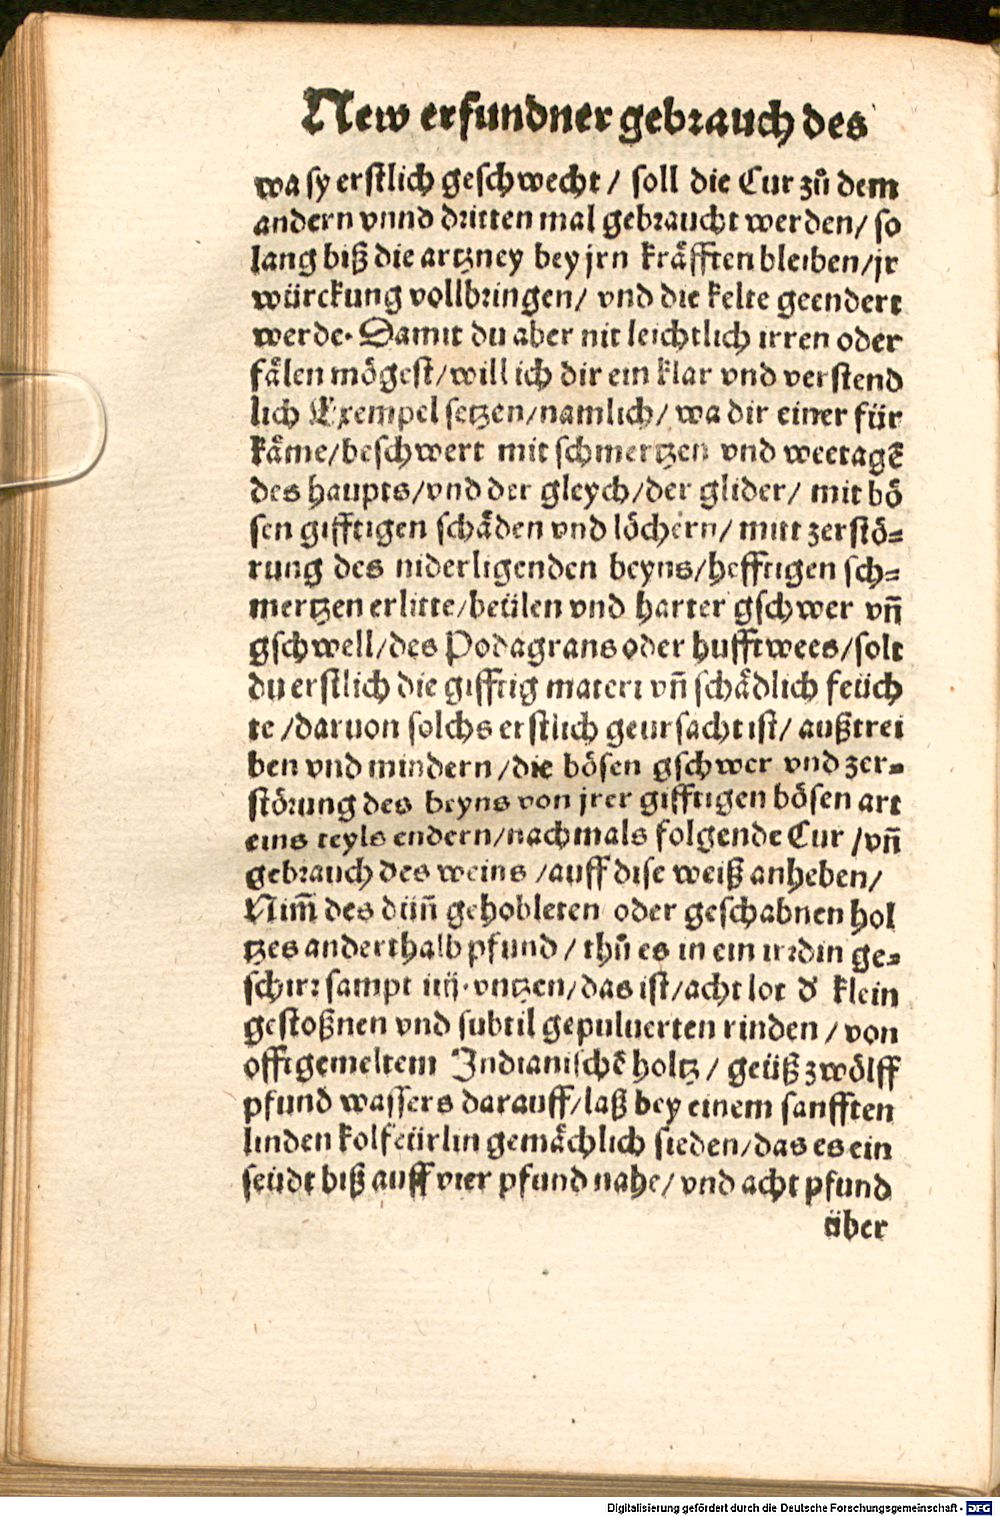 New erfundner gebrauch des
wa sy erstlich geschwecht / soll die Cur zů dem
andern vnnd dritten mal gebraucht werden / so
lang biß die artzney bey jrn kräfften bleiben / jr
würckung vollbringen / vnd die kelte geendert
werde. Damit du aber nit leichtlich irren oder
fälen mögest / will ich dir ein klar vnd verstend
lich Exempel setzen / namlich / wa dir einer für
käme / beschwert mit schmertzen vnd weetagẽ
des haupts / vnd der gleych / der glider / mit bö
sen gifftigen schäden vnd löchern / mitt zerstö⸗
rung des niderligenden beyns / hefftigen sch⸗
mertzen erlitte / beülen vnd harter gschwer vñ
gschwell / des Podagrans oder hufftwees / solt
du erstlich die gifftig materi vñ schädlich feüch
te / daruon solchs erstlich geursacht ist / außtrei
ben vnd mindern / die bösen gschwer vnd zer⸗
störung des beyns von jrer gifftigen bösen art
eins teyls endern / nachmals folgende Cur / vñ
gebrauch des weins / auff dise weiß anheben /
Nim̃ des dün̄ gehobleten oder geschabnen hol
tzes anderthalb pfund / thů es in ein irrdin ge⸗
schirr sampt iiij. vntzen / das ist / acht lot d' klein
gestoßnen vnd subtil gepuluerten rinden / von
offtgemeltem Indianischẽ holtz / geüß zwölff
pfund wassers darauff / laß bey einem sanfften
linden kolfeürlin gemächlich sieden / das es ein
seüdt biß auff vier pfund nahe / vnd acht pfund
über
Digitalisierung gefördert durch die Deutsche Forschungsgemeinschaft - DFG